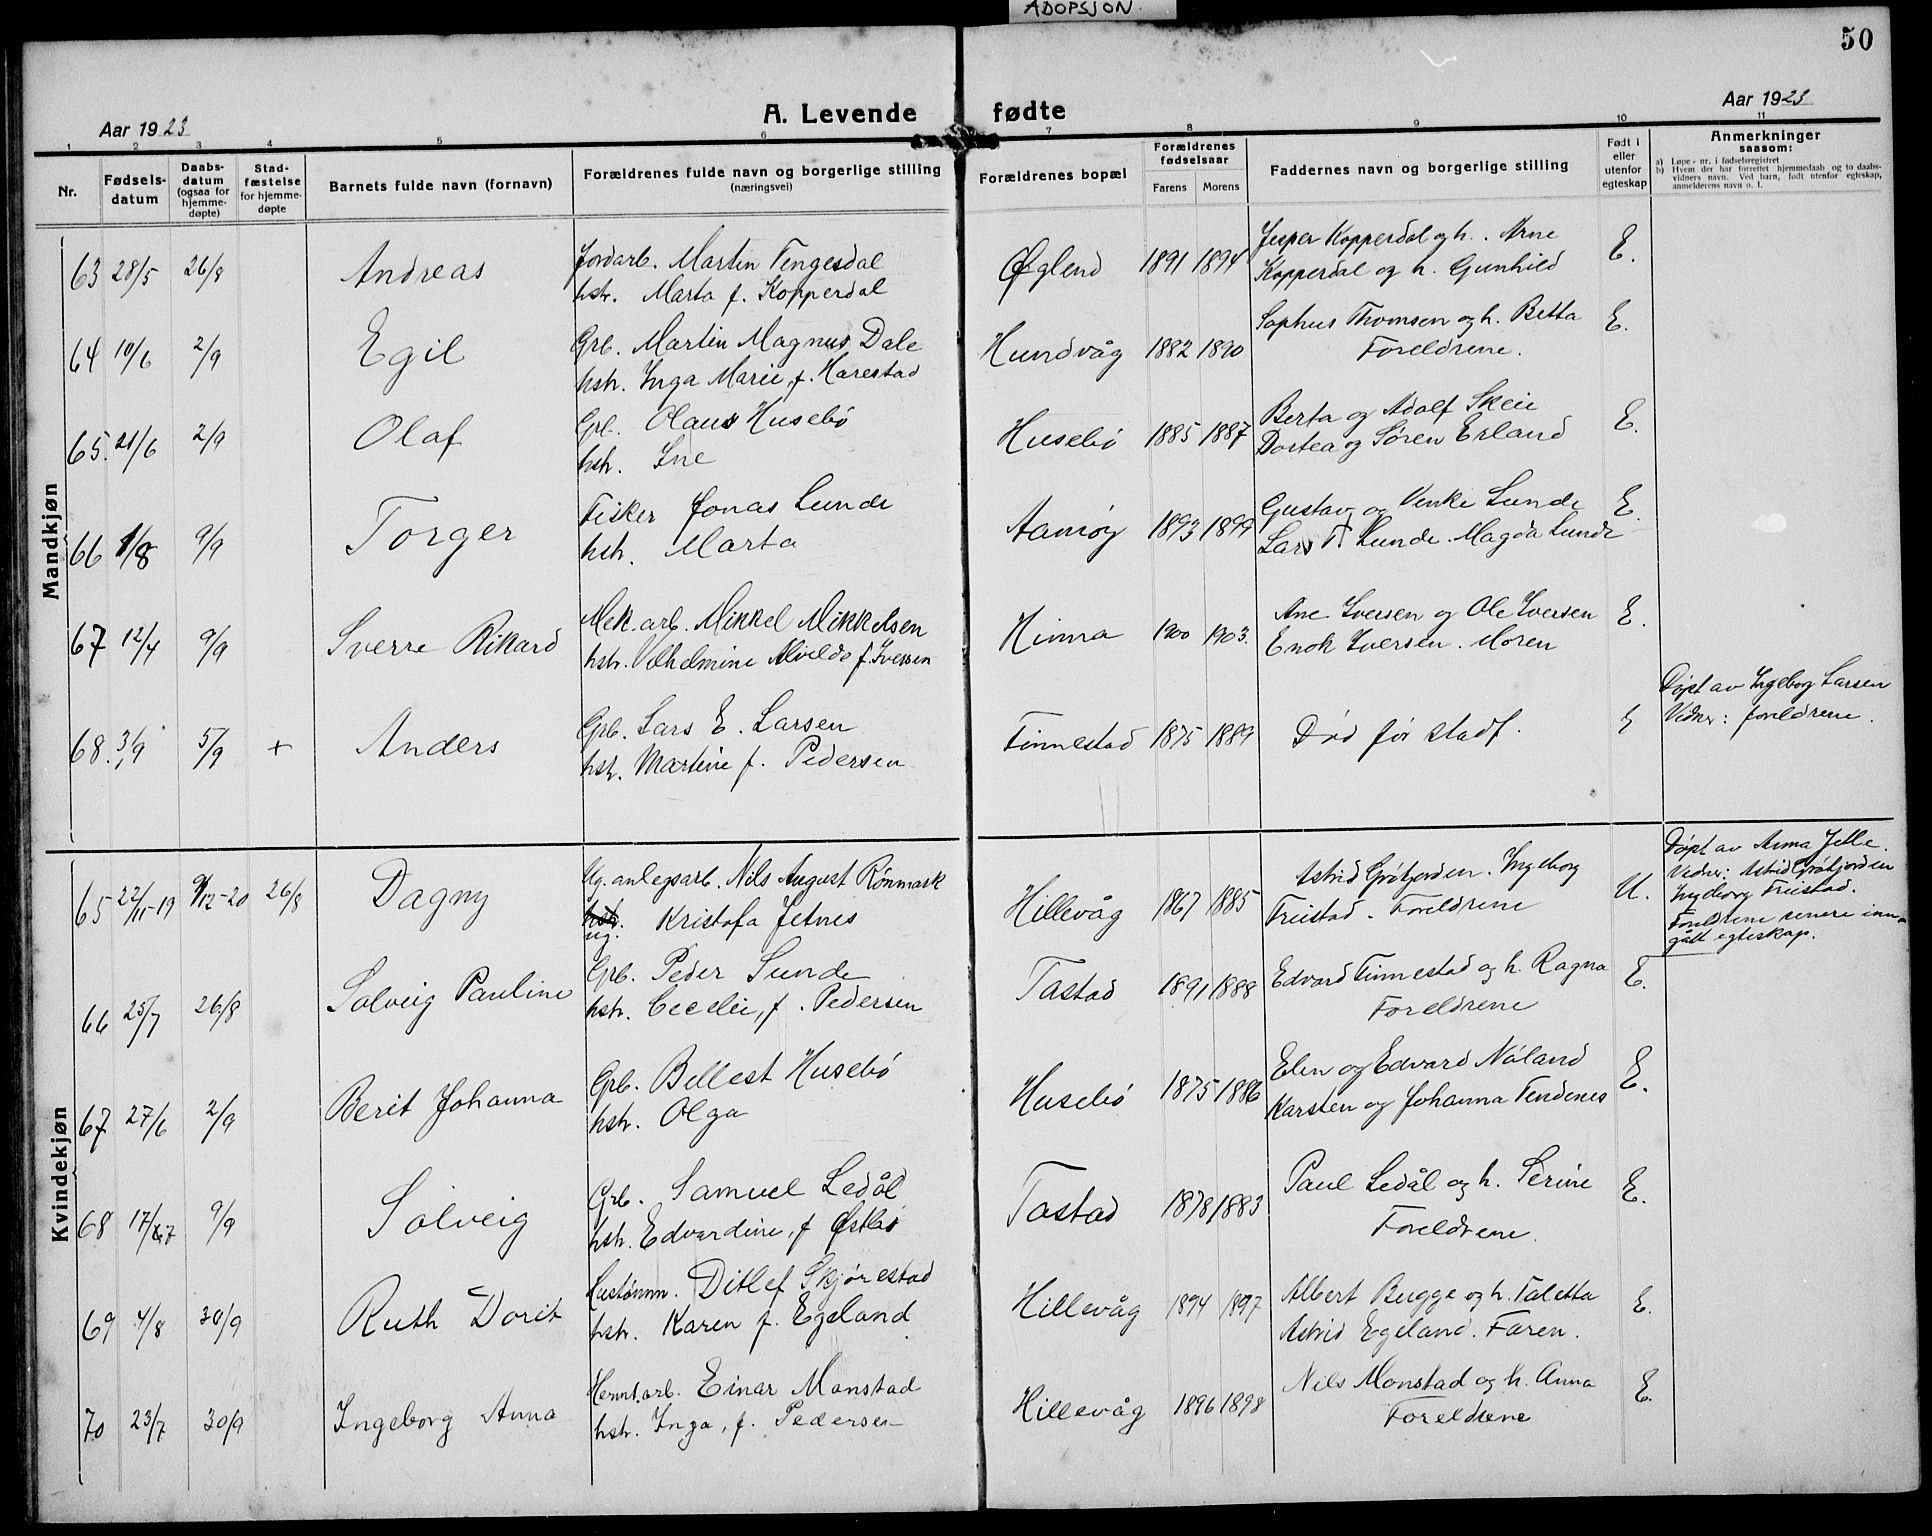 ADOPSJON
50
Aar 1923
A. Levende fødte
Aar 1923
1 2 3 4 5 6 7 8 9 10 11
Nr.
Fødsels-
datum
Daabs-
datum
(ogsaa for
hjemme-
døpte)
Stad-
fæstelse
for hjemme-
døpte
Barnets fulde navn (fornavn)
Forældrenes fulde navn og borgerlige stilling
(næringsvei)
Forældrenes bopæl
Forældrenes
fødselsaar
Farens
Morens
Faddernes navn og borgerlige stilling
Født i
eller
utenfor
egteskap
Anmerkninger
saasom:
a) Løpe-nr. i fødselsregistret
b) Hvem der har forrettet hjemmedaab og to daabs-
vidners navn. Ved barn, født utenfor egteskap,
anmelderens navn o. l.
Mandkjøn
63 28/5 26/8 Andreas Jordarb. Martin Tengesdal Øglend 1891 1894 Jesper Kopperdal og h. Arne E.
hstr. Marta f. Kopperdal Kopperdal og h. Gunhild
64 10/6 2/9 Egil Grb. Martin Magnus Dale Hundvåg 1882 1890 Sophus Thomsen og h. Betta E.
hstr. Inga Marie, f. Harestad Foreldrene.
65. 21/6 2/9 Olaf Grb. Olaus Husebø Husebø 1885 1887 Berta og Adolf Skeie E.
hstr. Ine Dortea og Søren Erland
66 1/8 9/9 Torger Fisker Jonas Lunde Aamøy 1893 1899 Gustav og Venke Lunde E.
hstr. Marta Lars T. Lunde. Magda Lunde
67 12/4 9/9 Sverre Rikard Mek. arb. Mikkel Mikkelsen Hinna 1900 1903. Ane Iversen og Ole Iversen E.
hstr. Vilhelmine Alvilde f. Iversen Enok Iversen. Moren
68. 3/9 5/9 + Anders Grb. Lars E. Larsen Finnestad 1875 1889 Død før stadf. E Døpt av Ingeborg Larsen
hstr. Martine f. Pedersen Vidner: foreldrene.
Kvindekjøn
65 22/11-19 9/12-20 26/8 Dagny Ug. anlegsarb. Nils August Rönmark Hillevåg 1867 1885 Astrid Gråfjorden. Ingeborg U. Døpt av Anna Jelle.
hstr. ug. Kristofa Jetnes Freistad. Foreldrene Vidner: Astrid Gråfjorden
Ingeborg Freistad.
Foreldrene senere inn-
gått egteskap.
66 25/7 26/8 Solveig Pauline Grb. Peder Sunde Tastad 1891 1888 Edvard Finnestad og h. Ragna E.
hstr. Cecelie, f. Pedersen Foreldrene
67 27/6 2/9 Berit Johanna Grb. Bellest Husebø Husebø 1875 1886 Elen og Edvard Nåland E.
hstr. Olga Karsten og Johanna Tendenes
68 17/7 9/9 Solveig Grb. Samuel Ledål Tastad 1878 1883 Paul Ledål og h. Serine E.
hstr. Edvardine, f Østbø Foreldrene.
69 4/8 30/9 Ruth Dorit Hustømm. Ditlef Skjørestad Hillevåg 1894 1897 Albert Bugge og h. Taletta E.
hstr. Karen f. Egeland Astrid Egeland. Faren.
70 23/7 30/9 Ingeborg Anna Hermt.arb. Einar Monstad Hillevåg 1896 1898 Nils Monstad og h. Anna E.
hstr. Inga, f. Pedersen Foreldrene